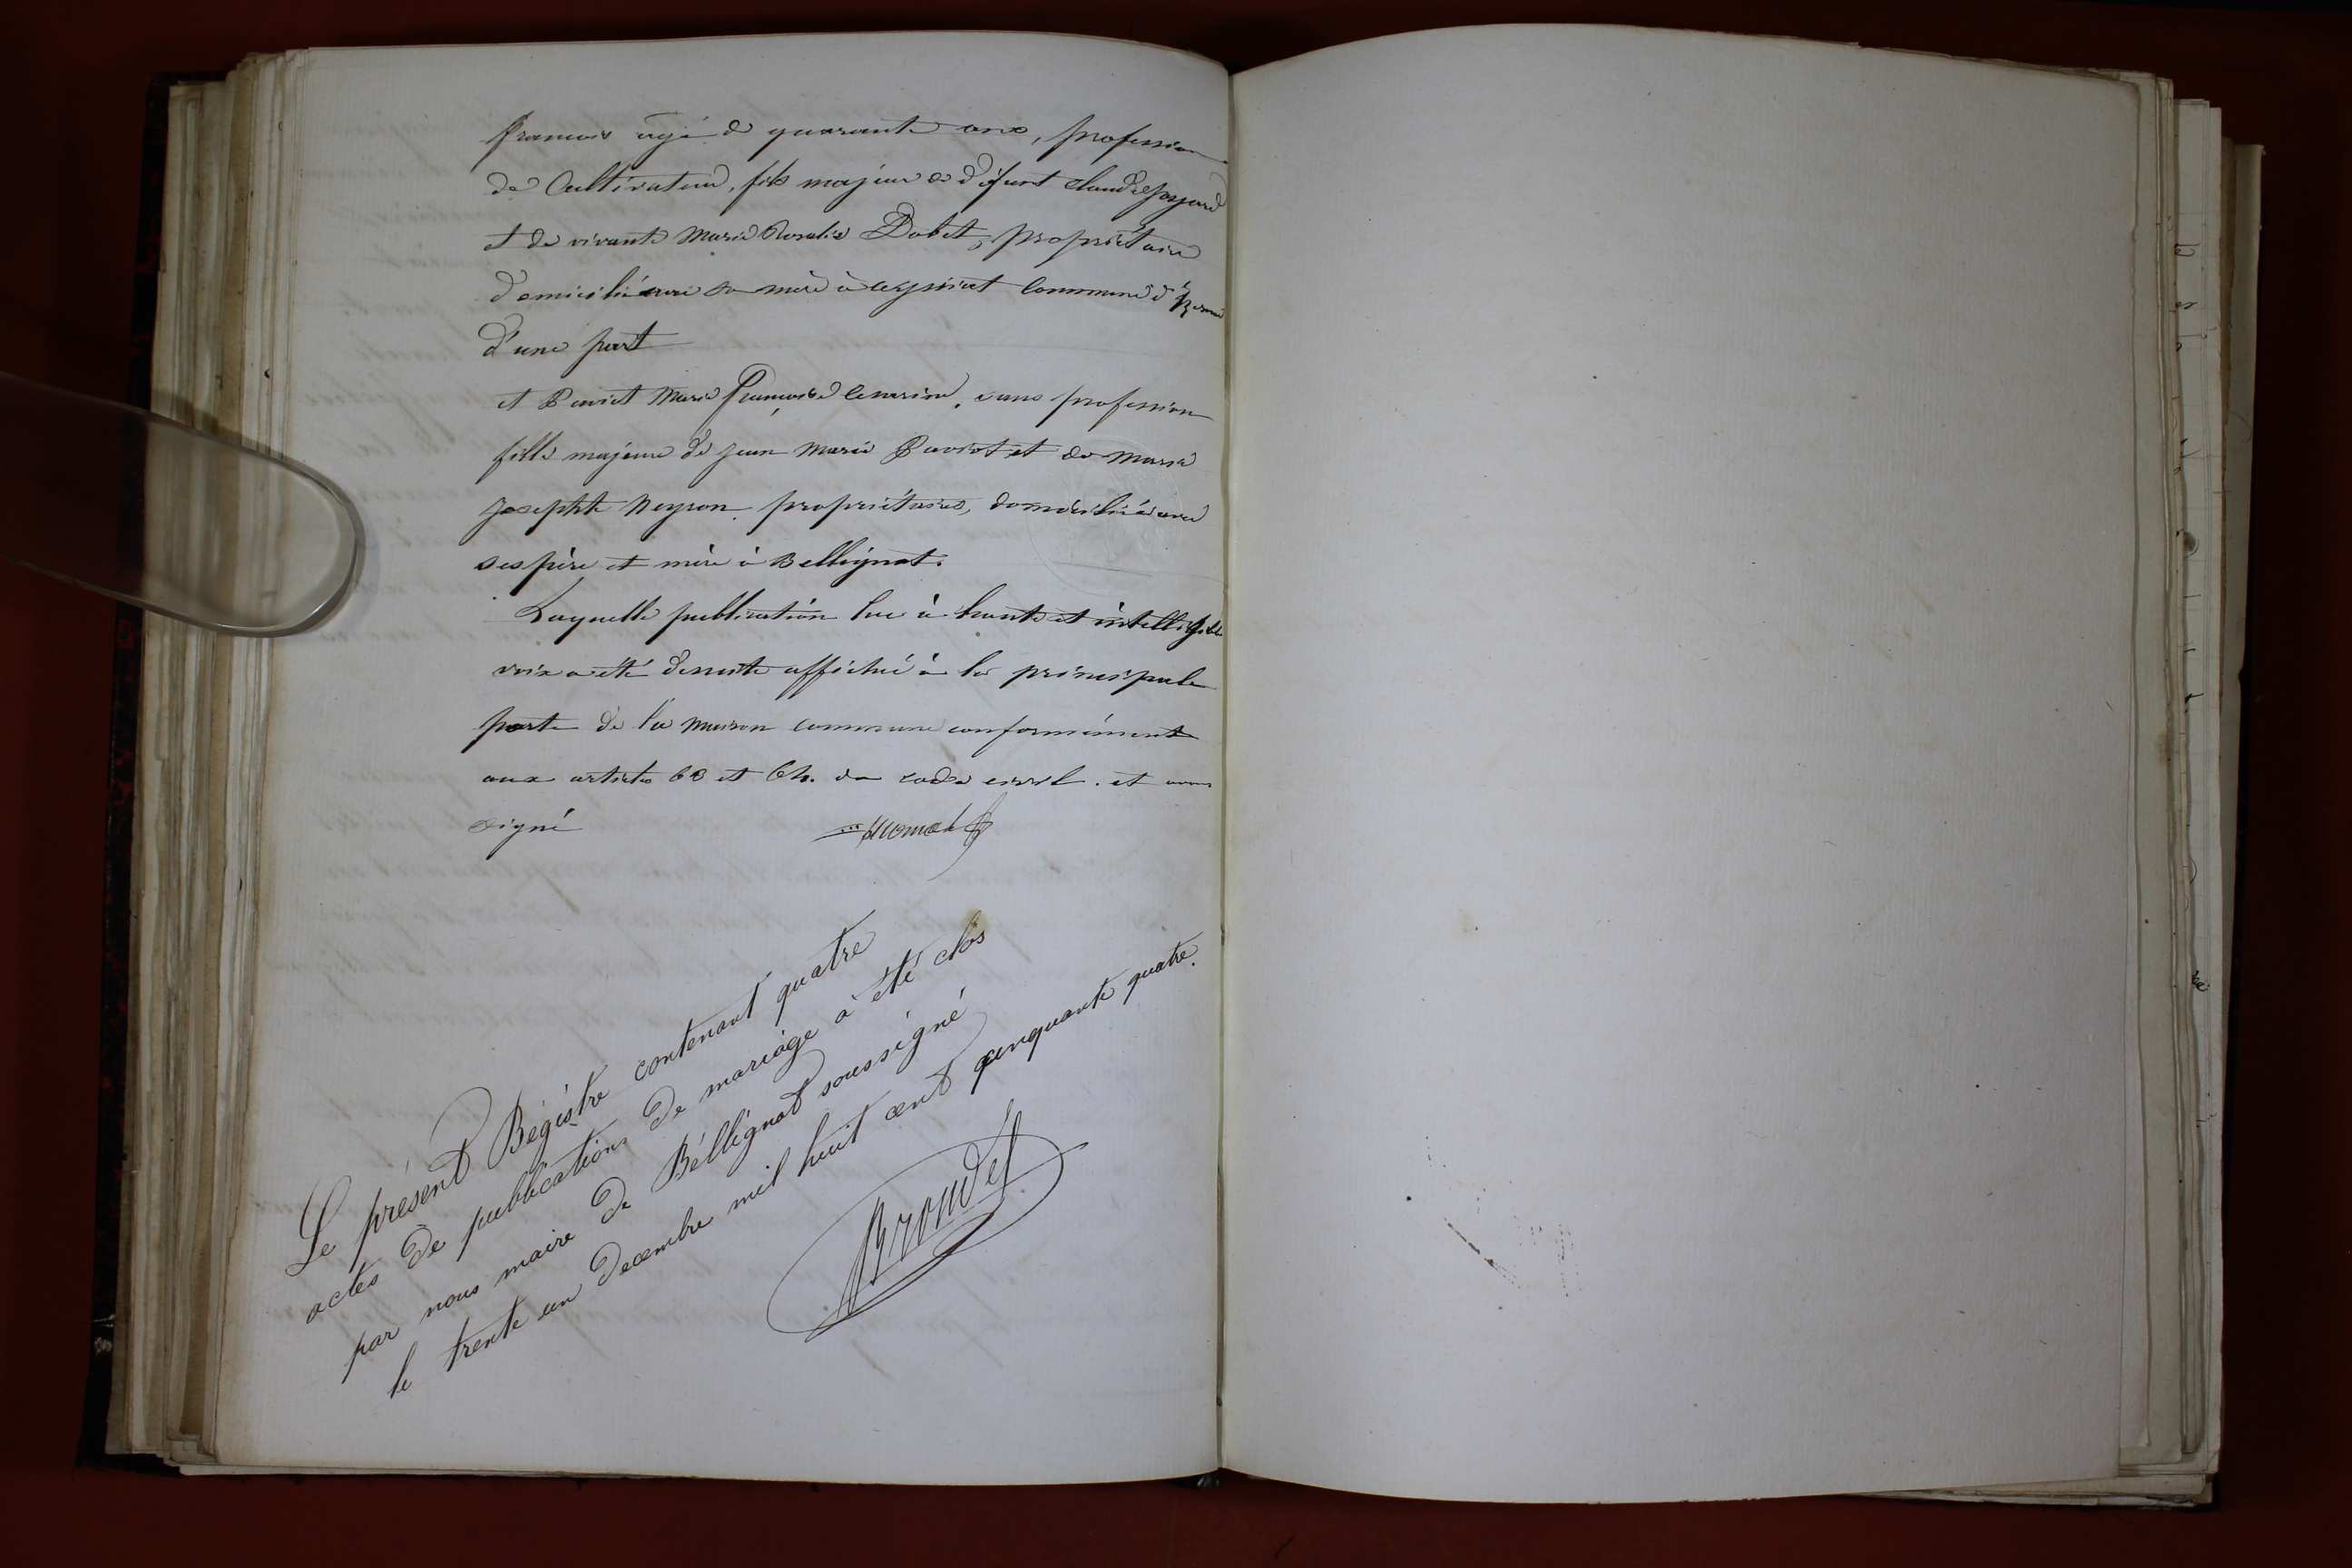 françois agé de quarante ans, profession
de Cultivateur, fils majeur de défunt claude
et de vivante Marie Rosalie Dobet, propriétaire
domicilié avec sa mère à commune d'
d'une part
et Paviot Marie françoise Cesarine, sans profession
fille majeure de jean Marie Paviot et de Marie
josephte Neyron propriétaires, domiciliée avec
ses père et mère à Bellignat.
Laquelle publication lue à haute et intelligible
voix a été desuite affiché à la principale
porte de la maison commune conformément
aux articles 63 et 64. du code civil. et avons
signé
Le présent Régistre contenant quatre
actes de publications de mariage à été clos
par nous maire de Béllignat soussigné
le trente un Decembre mil huit cent cinquante quatre.
Brondel